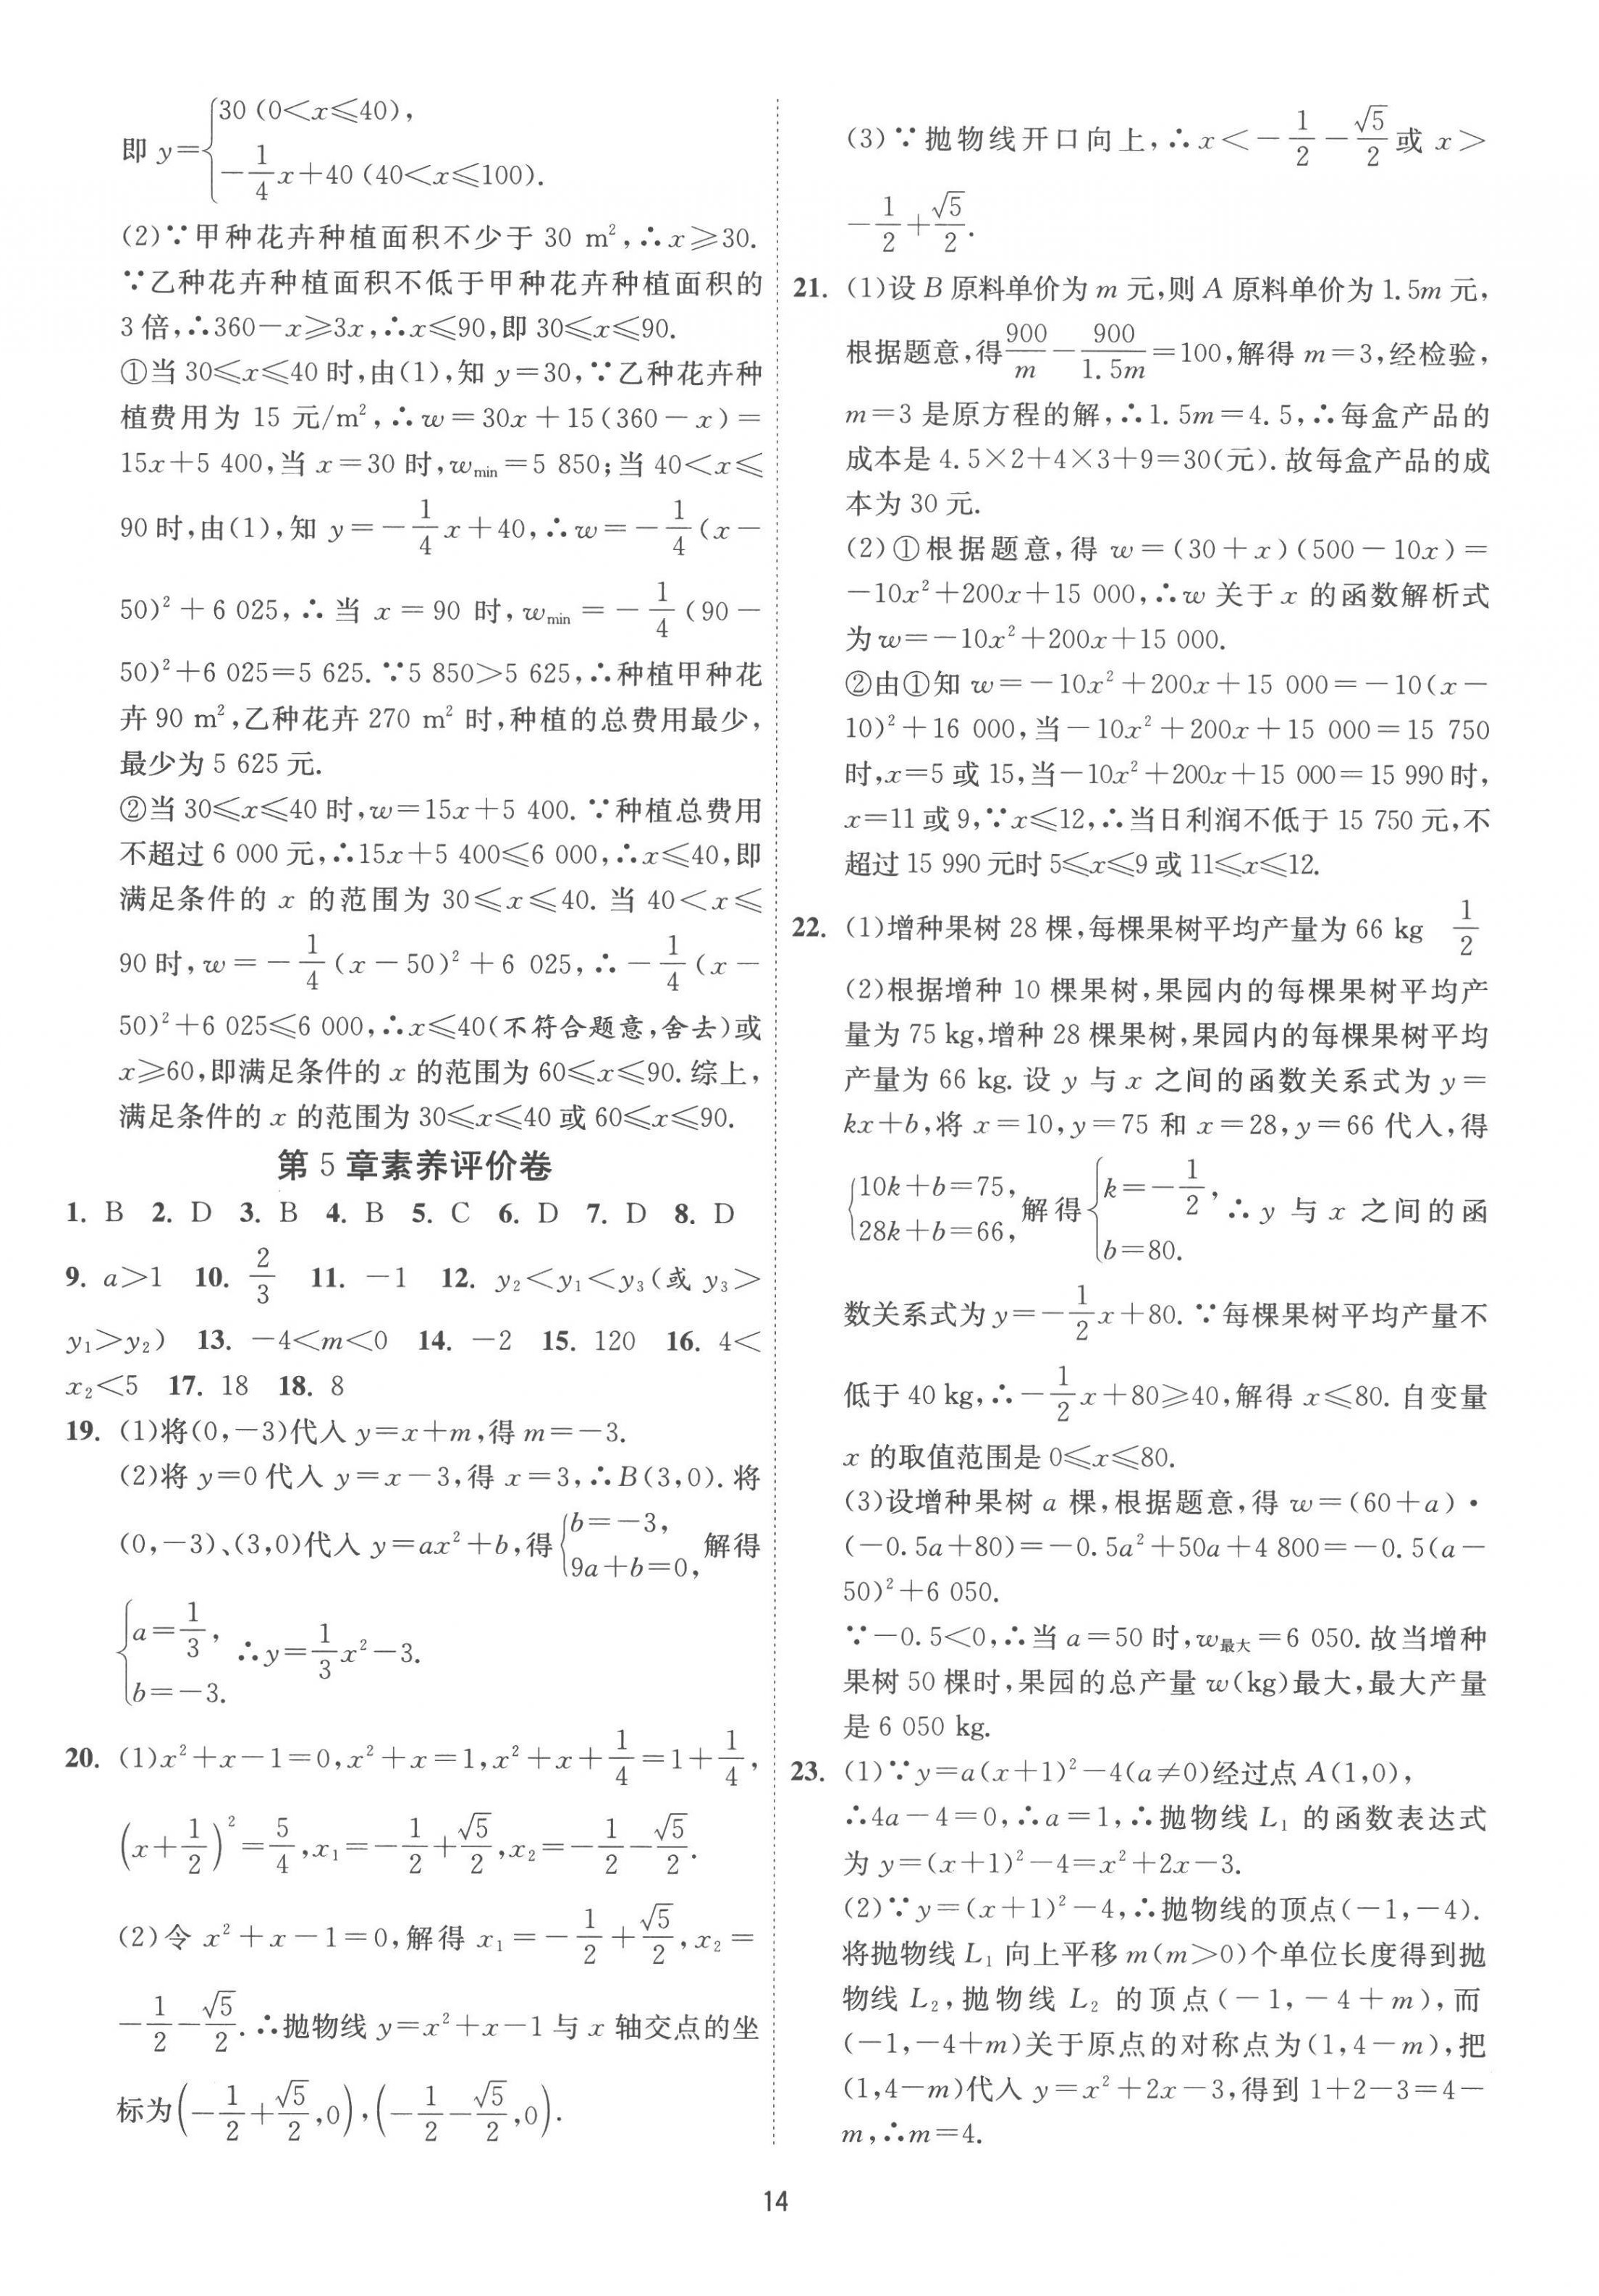 即 y={30 (0<x≤40),
-1/4x+40 (40<x≤100).
(2)∵甲种花卉种植面积不少于 30 m²,∴x≥30.
∵乙种花卉种植面积不低于甲种花卉种植面积的
3 倍,∴360-x≥3x,∴x≤90,即 30≤x≤90.
①当 30≤x≤40 时,由(1),知 y=30,∵乙种花卉种
植费用为 15 元/m²,∴w=30x+15(360-x)=
15x+5 400,当 x=30 时,wmin=5 850;当 40<x≤
90 时,由(1),知 y=-1/4x+40,∴w=-1/4(x-
50)²+6 025,∴当 x=90 时,wmin=-1/4(90-
50)²+6 025=5 625.∵5 850>5 625,∴种植甲种花
卉 90 m²,乙种花卉 270 m² 时,种植的总费用最少,
最少为 5 625 元.
②当 30≤x≤40 时,w=15x+5 400.∵种植总费用
不超过 6 000 元,∴15x+5 400≤6 000,∴x≤40,即
满足条件的 x 的范围为 30≤x≤40.当 40<x≤
90 时,w=-1/4(x-50)²+6 025,∴-1/4(x-
50)²+6 025≤6 000,∴x≤40(不符合题意,舍去)或
x≥60,即满足条件的 x 的范围为 60≤x≤90.综上,
满足条件的 x 的范围为 30≤x≤40 或 60≤x≤90.
第 5 章素养评价卷
1. B 2. D 3. B 4. B 5. C 6. D 7. D 8. D
9. a>1 10. 2/3 11. -1 12. y₂<y₁<y₃(或 y₃>
y₁>y₂) 13. -4<m<0 14. -2 15. 120 16. 4<
x₂<5 17. 18 18. 8
19. (1)将(0,-3)代入 y=x+m,得 m=-3.
(2)将 y=0 代入 y=x-3,得 x=3,∴B(3,0).将
(0,-3)、(3,0)代入 y=ax²+b,得{b=-3, 9a+b=0, 解得
{a=1/3, b=-3. ∴y=1/3x²-3.
20. (1)x²+x-1=0,x²+x=1,x²+x+1/4=1+1/4,
(x+1/2)²=5/4,x₁=-1/2+√5/2,x₂=-1/2-√5/2.
(2)令 x²+x-1=0,解得 x₁=-1/2+√5/2,x₂=
-1/2-√5/2.∴抛物线 y=x²+x-1 与 x 轴交点的坐
标为(-1/2+√5/2,0),(-1/2-√5/2,0).
(3)∵抛物线开口向上,∴x<-1/2-√5/2 或 x>
-1/2+√5/2.
21. (1)设 B 原料单价为 m 元,则 A 原料单价为 1.5m 元,
根据题意,得 900/m-900/1.5m=100,解得 m=3,经检验,
m=3 是原方程的解,∴1.5m=4.5,∴每盒产品的
成本是 4.5×2+4×3+9=30(元).故每盒产品的成
本为 30 元.
(2)①根据题意,得 w=(30+x)(500-10x)=
-10x²+200x+15 000,∴w 关于 x 的函数解析式
为 w=-10x²+200x+15 000.
②由①知 w=-10x²+200x+15 000=-10(x-
10)²+16 000,当-10x²+200x+15 000=15 750
时,x=5 或 15,当-10x²+200x+15 000=15 990 时,
x=11 或 9,∵x≤12,∴当日利润不低于 15 750 元,不
超过 15 990 元时 5≤x≤9 或 11≤x≤12.
22. (1)增种果树 28 棵,每棵果树平均产量为 66 kg 1/2
(2)根据增种 10 棵果树,果园内的每棵果树平均产
量为 75 kg,增种 28 棵果树,果园内的每棵果树平均
产量为 66 kg.设 y 与 x 之间的函数关系式为 y=
kx+b,将 x=10,y=75 和 x=28,y=66 代入,得
{10k+b=75, 28k+b=66, 解得{k=-1/2, b=80. ∴y 与 x 之间的函
数关系式为 y=-1/2x+80.∵每棵果树平均产量不
低于 40 kg,∴-1/2x+80≥40,解得 x≤80.自变量
x 的取值范围是 0≤x≤80.
(3)设增种果树 a 棵,根据题意,得 w=(60+a)·
(-0.5a+80)=-0.5a²+50a+4 800=-0.5(a-
50)²+6 050.
∵-0.5<0,∴当 a=50 时,w最大=6 050.故当增种
果树 50 棵时,果园的总产量 w(kg)最大,最大产量
是 6 050 kg.
23. (1)∵y=a(x+1)²-4(a≠0)经过点 A(1,0),
∴4a-4=0,∴a=1,∴抛物线 L₁ 的函数表达式
为 y=(x+1)²-4=x²+2x-3.
(2)∵y=(x+1)²-4,∴抛物线的顶点(-1,-4).
将抛物线 L₁ 向上平移 m(m>0)个单位长度得到抛
物线 L₂,抛物线 L₂ 的顶点(-1,-4+m),而
(-1,-4+m)关于原点的对称点为(1,4-m),把
(1,4-m)代入 y=x²+2x-3,得到 1+2-3=4-
m,∴m=4.
14